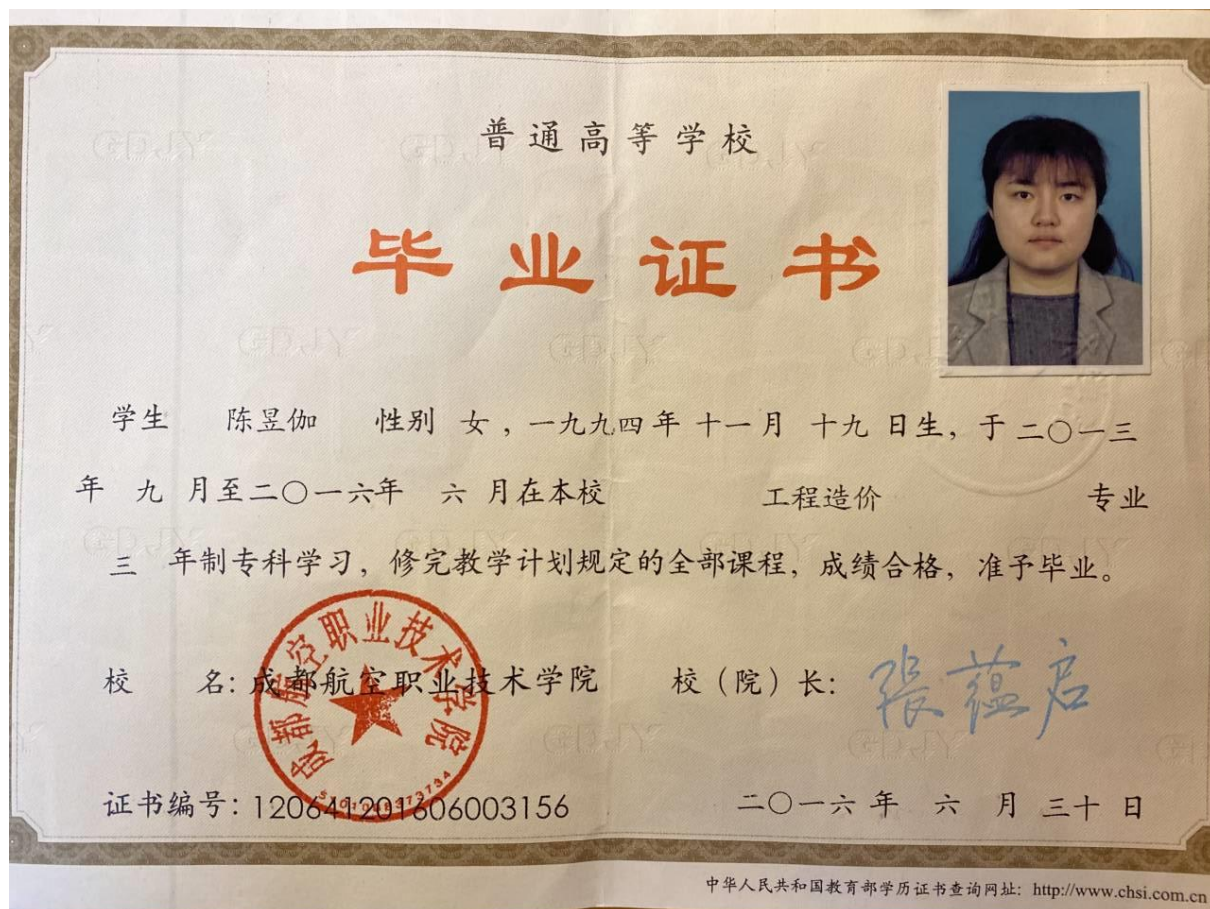 普通高等学校
毕业证书
学生 陈昱伽 性别 女，一九九四年 十一月 十九 日生，于二〇一三
年 九 月至二〇一六年 六 月在本校 工程造价 专业
三 年制专科学习，修完教学计划规定的全部课程，成绩合格，准予毕业。
成都航空职业技术学院
校 名：成都航空职业技术学院 校（院）长：張蕴启
证书编号：120641201606003156 二〇一六年 六 月 三十 日
中华人民共和国教育部学历证书查询网址：http://www.chsi.com.cn